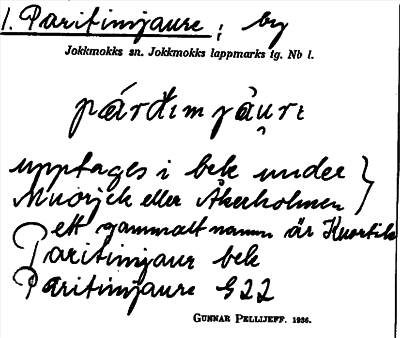 1. Paritimjaure ; by
Jokkmokks sn. Jokkmokks lappmarks tg. Nb l.
párđtmjàurɛ
upptages i bek under
Muorjek eller Åkerholmen
ett gammalt namn är Kuortik
Paritimjaur bek
Paritimjaure G22
GUNNAR PELLIJEFF. 1936.